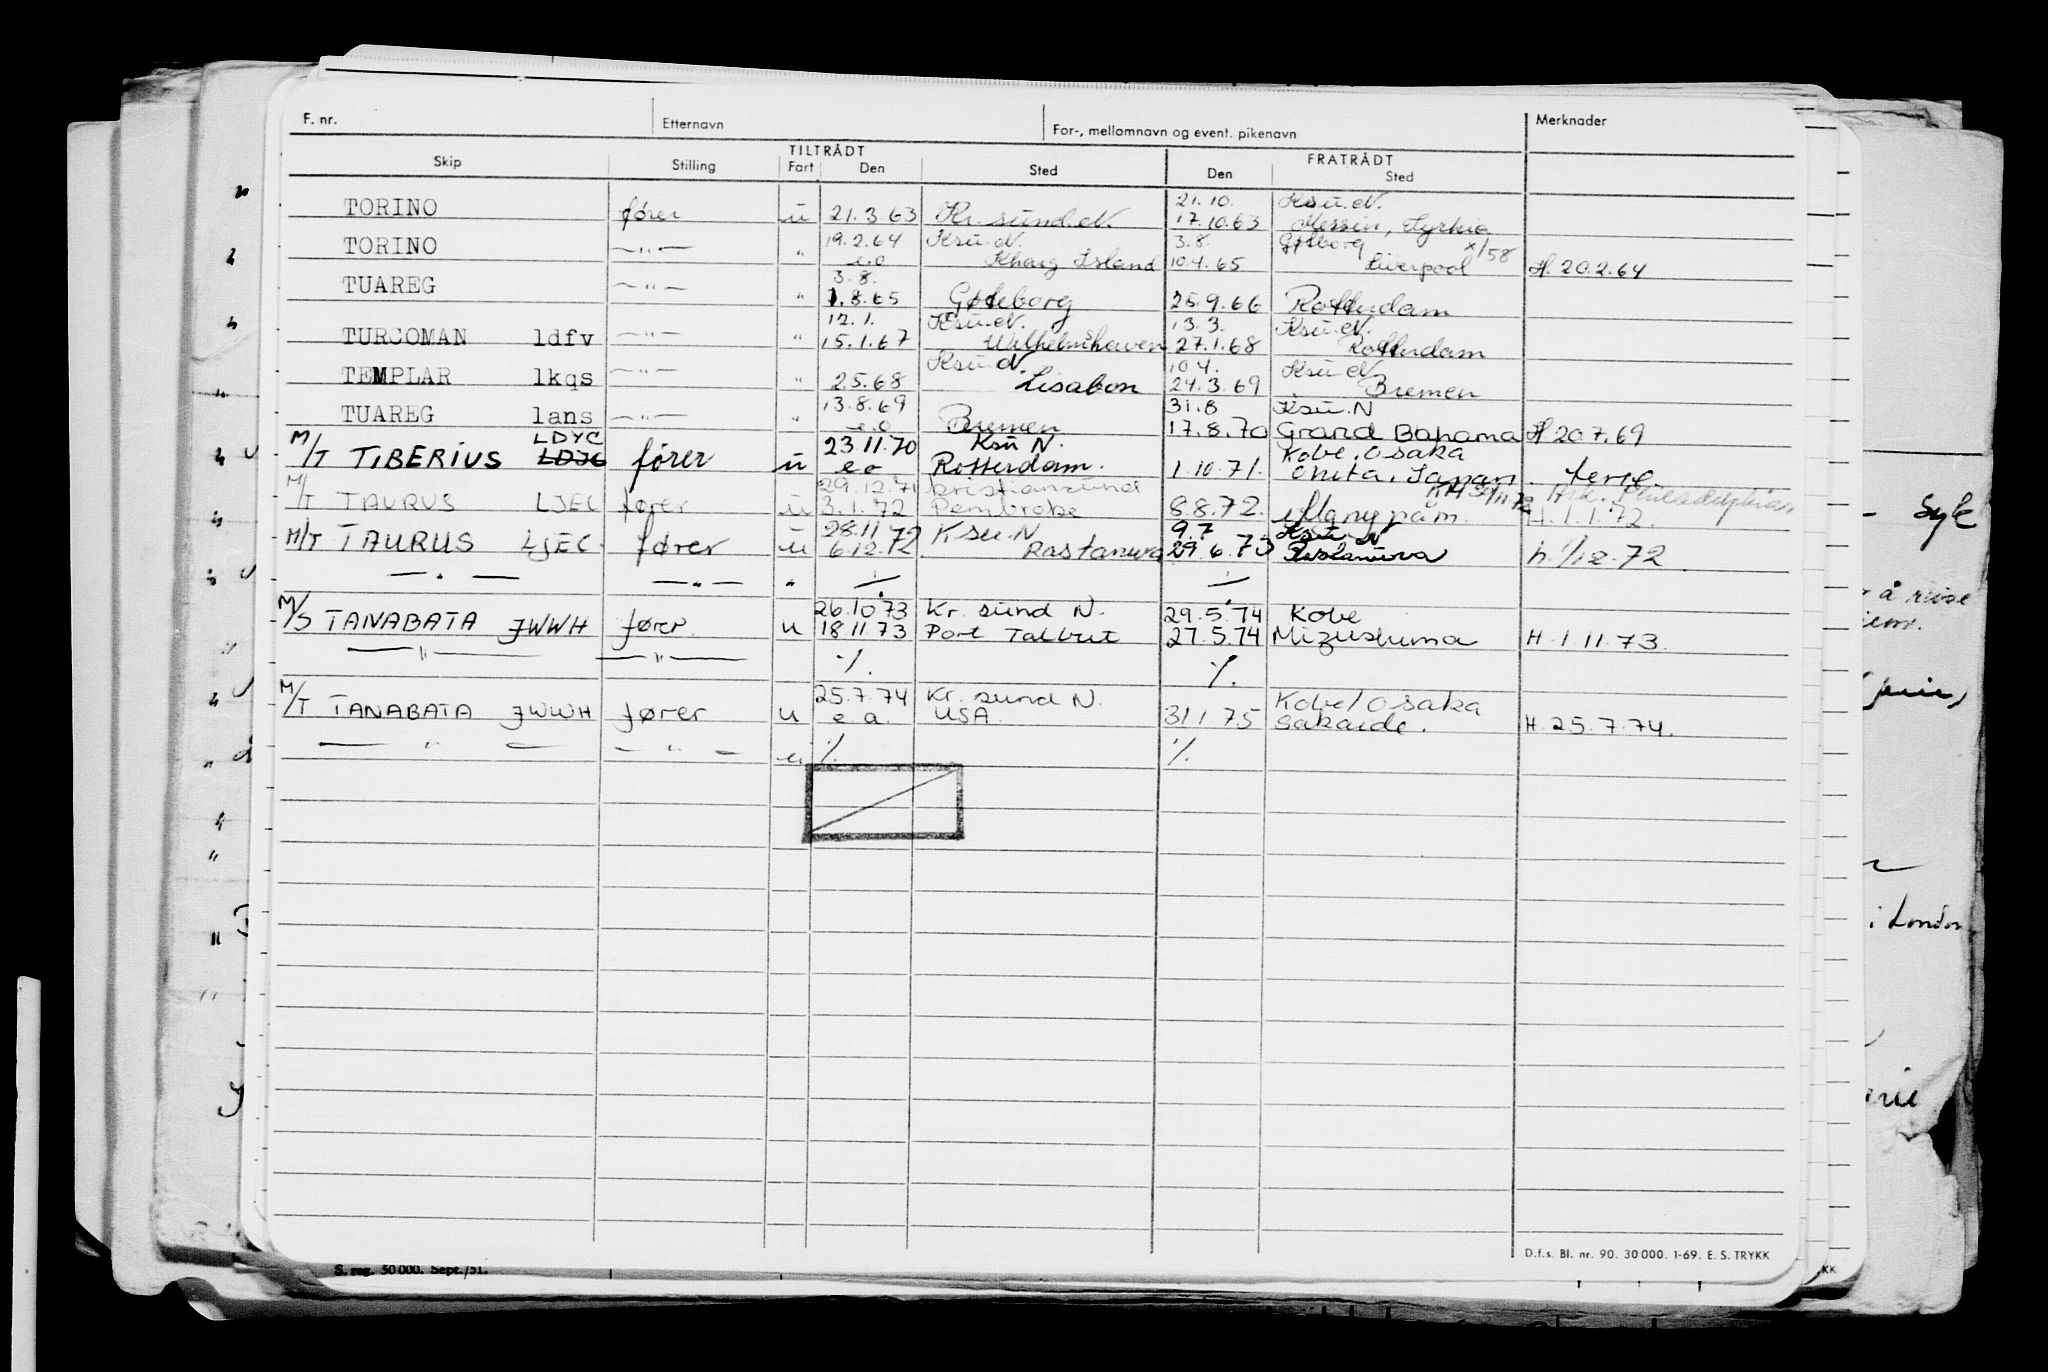 F. nr. Etternavn For-, mellomnavn og event. pikenavn Merknader
TILTRÅDT FRATRÅDT
Skip Stilling Fart Den Sted Den Sted
21.10. Ksu.N.
TORINO fører u 21.3.63 Kr. sund.N. 17.10.63 Messin,
19.2.64 Ksu.N. 3.8. Gøteborg x/58
TORINO —"— " e.o Kharg Island 10.4.65 Liverpool H. 20.2.64
3.8.
TUAREG —"— " 1.8.65 Gøteborg 25.9.66 Rotterdam
12.1. Ksu.N. 13.3. Ksu.N.
TURCOMAN ldfv —"— " 15.1.67 Wilhelmshaven 27.1.68 Rotterdam
Ksu.N. 10.4. Ksu.N
TEMPLAR lkqs —"— " 2.5.68 Lisabon 24.3.69 Bremen
13.8.69 31.8 Ksu.N
TUAREG lans —"— " e.o Bremen 17.8.70 Grand Bahama H 20.7.69
LDYC 23 11.70 Ksu N. Kobe, Osaka
M/T TIBERIUS LDJG fører u e o Rotterdam. 1.10.71. Onita, Japan. ferie.
29.12.71 Kristiansund
M/T TAURUS LJEC fører u 3.1.72 Pembroke 8.8.72. H.1.1.72.
28.11 72 Ksu.N 9.7 Ksu N
M/T TAURUS LJEC. fører u 6.12.72 Rastanura 29.6.73 Rastanura h. 1/12.72.
—"— —"— " ./. ./.
26.10.73 Kr. sund N. 29.5.74 Kobe
M/S TANABATA JWWH fører. u 18.11 73 Port Talbut 27.5.74 Mizushima H.1.11.73.
—"— —"— ./. ./.
25.7.74 Kr. sund N. Kobe/Osaka
M/T TANABATA JWWH fører u e.a. USA. 31.1 75 Sakaide. H.25.7.74.
—"— —"— u ./. ./.
D.f.s. Bl. nr. 90. 30 000. 1-69. E. S. TRYKK
S. reg. 50 000. Sept./51.
Syk
å reise
i London